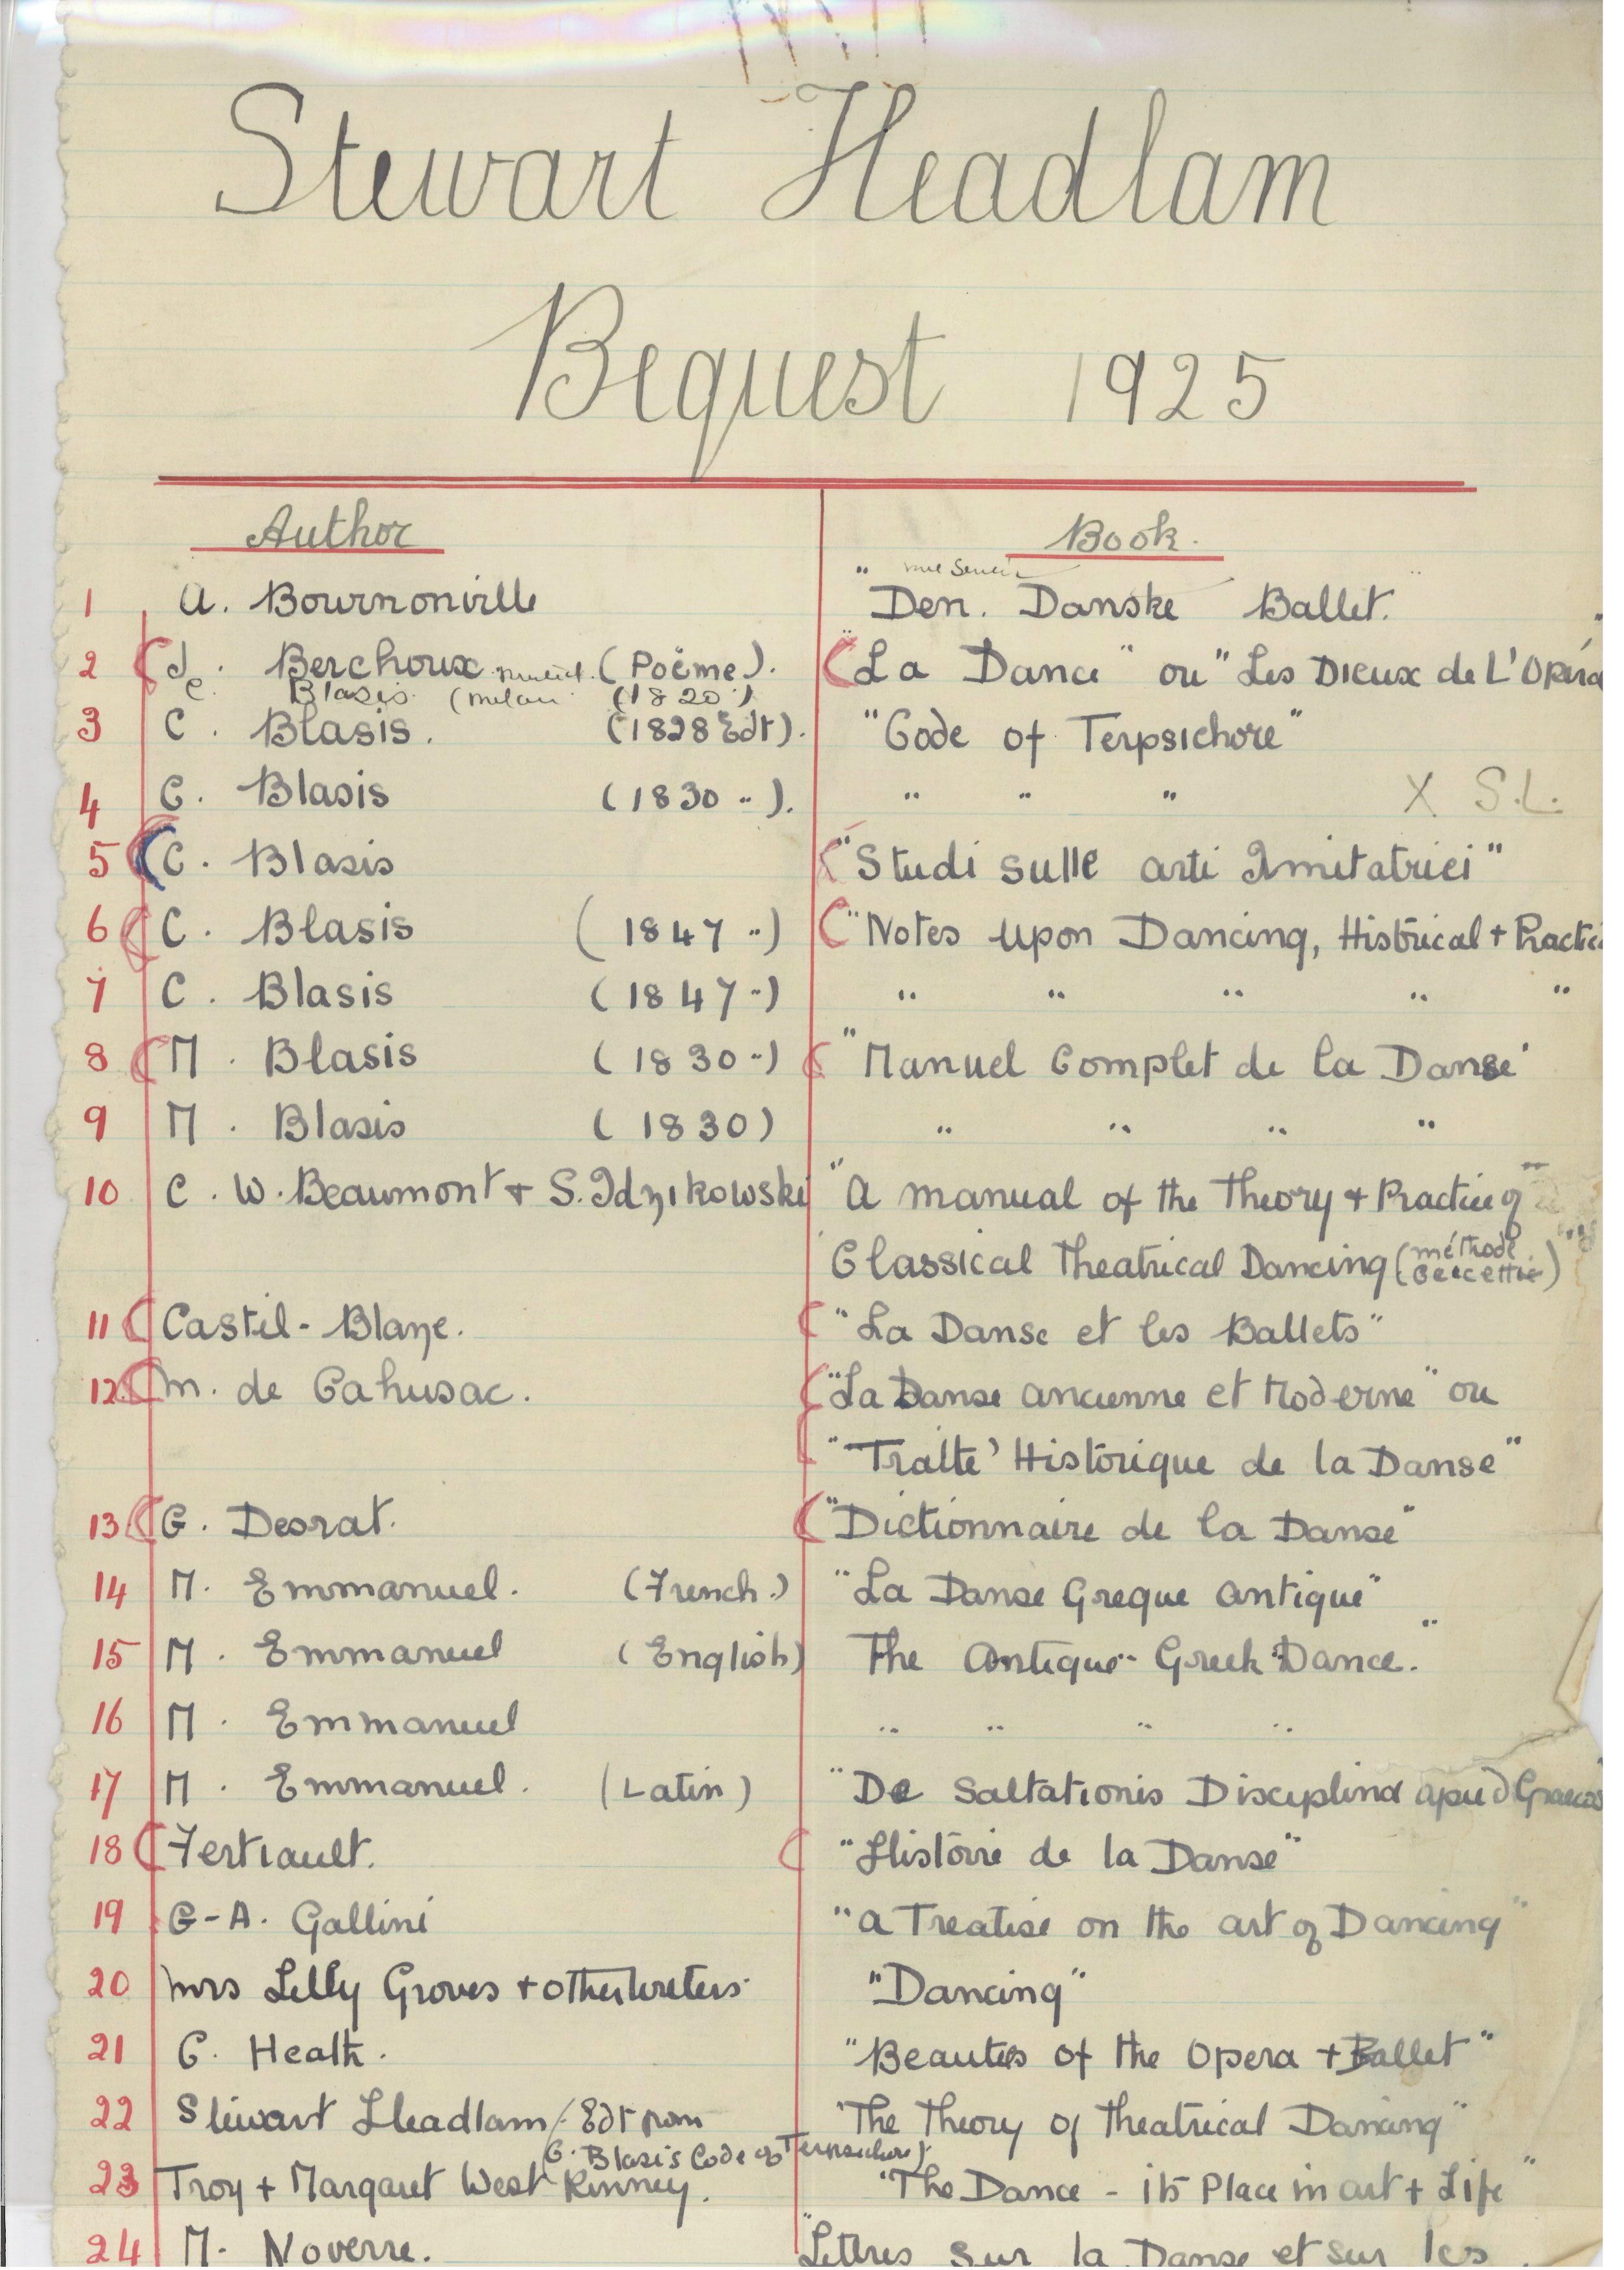 Stewart Headlam
Bequest 1925
Author Book.
1 A. Bournonville "Den. Danske Ballet."
2 J. Berchoux (Poëme). "La Dance" ou "Les Dieux de L'Opéra
C. Blasis (Milan (1820)
3 C. Blasis. (1828 Edt). "Code of Terpsichore"
4 C. Blasis (1830 "). " " " X S.L.
5 C. Blasis "Studi sulle arti Imitatrici"
6 C. Blasis (1847 ") "Notes Upon Dancing, Historical + Practic
7 C. Blasis (1847 ") " " " " "
8 M. Blasis (1830 ") "Manuel Complet de la Danse"
9 M. Blasis (1830) " " " "
10 C. W. Beaumont + S. Idzikowski "A manual of the Theory + Practice of
Classical Theatrical Dancing (méthode Cecchetti)
11 Castil-Blaze. "La Danse et les Ballets"
12 M. de Cahusac. "La Danse ancienne et Moderne" ou
"Traité Historique de la Danse"
13 G. Desrat. "Dictionnaire de la Danse"
14 M. Emmanuel. (French.) "La Danse Greque antique"
15 M. Emmanuel (English) The Antique Greek Dance."
16 M. Emmanuel " " " "
17 M. Emmanuel. (Latin) "De Saltationis Disciplina apud Graecos
18 Fertiault. "Histoire de la Danse"
19 G-A. Gallini "A Treatise on the art of Dancing"
20 Mrs Lilly Groves + other writers "Dancing"
21 C. Heath. "Beauties of the Opera + Ballet"
22 Stewart Headlam (Edt from "The Theory of Theatrical Dancing"
C. Blasis Code of Terpsichore)
23 Troy + Margaret West Kinney. "The Dance - its Place in art + Life"
24 M. Noverre. "Lettres sur la Danse et sur les